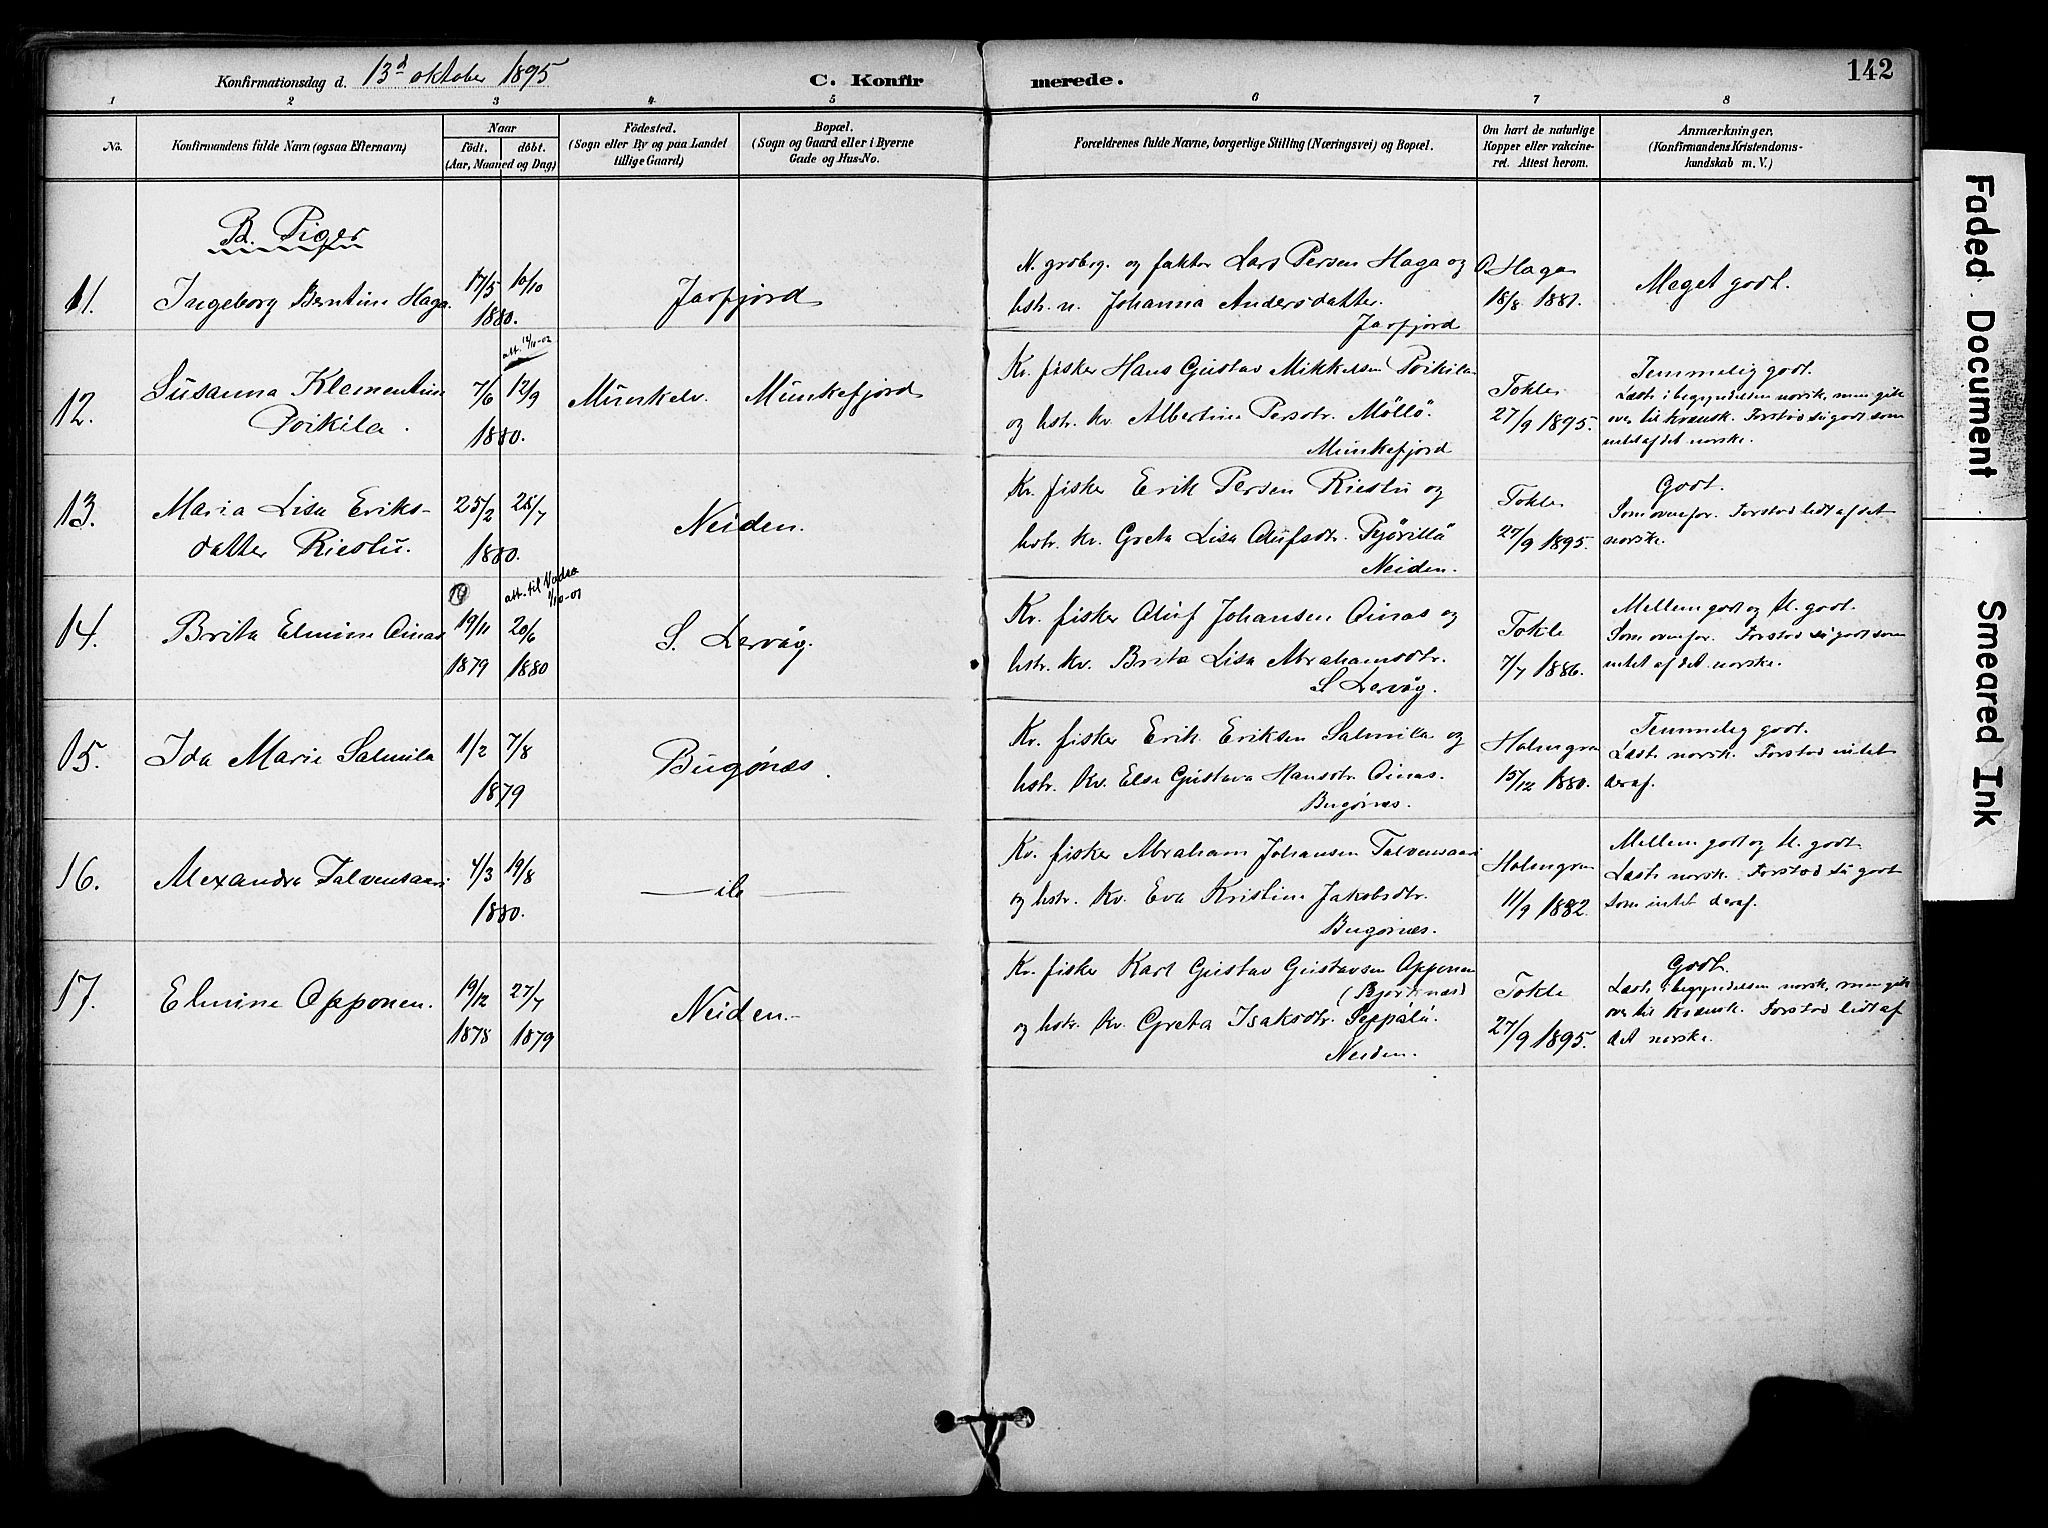 Konfirmationsdag d. 13d oktober 1895
C. Konfirmerede.
142
1 2 3 4 5 6 7 8
No.
Konfirmandens fulde Navn (ogsaa Efternavn)
Naar
födt. döbt.
(Aar, Maaned og Dag)
Födested.
(Sogn eller By og paa Landet
tillige Gaard)
Bopæl.
(Sogn og Gaard eller i Byerne
Gade og Hus-No.
Forældrenes fulde Navne, borgerlige Stilling (Næringsvei) og Bopæl.
Om havt de naturlige
Kopper eller vakcine-
ret. Attest herom.
Anmærkninger.
(Konfirmandens Kristendoms-
kundskab m. V.)
B. Piger
11. Ingeborg Berntine Haga
17/5 10/10
1880.
Jarfjord
N. grdbrg. og faktor Lars Persen Haga og
hstr. n. Johanna Andersdatter.
Jarfjord
O Haga
18/8 1881.
Meget godt.
12. Susanna Klementine
Poikila.
7/6 12/9
1880.
Munkelv. Munkefjord
Kv. fisker Hans Gustav Mikkelsen Poikila
og hstr. kv. Albertine Persdtr. Möllö.
Munkefjord
Tokle
27/9 1895.
Temmelig godt.
Læste i begyndelsen norsk, men gik
over til kvænsk. Forstod så godt som
intet af det norske.
13. Maria Lisa Eriks-
datter Riestu.
25/2 25/7
1880.
Neiden.
Kv. fisker Erik Persen Riestu og
hstr. kv. Greta Lisa Olufsdtr. Pjörillä
Neiden.
Tokle
27/9 1895.
Godt.
Som ovenfor. Forstod lidt af det
norske.
att. til Vadsø
1/10-01
14. Brita Elmine Ainas
19/11 20/6
1879 1880
S. Lervåg.
Kv. fisker Oluf Johansen Ainas og
hstr. kv. Brita Lisa Abrahamsdtr.
S Lervåg.
Tokle
7/7 1886.
Mellem godt og M. godt.
Som ovenfor. Forstod så godt som
intet af det norske.
15. Ida Marie Salmila
1/2 7/8
1879
Bugönæs.
Kv. fisker Erik Eriksen Salmila og
hstr. kv. Elsa Gustava Hansdtr. Ainas.
Bugönæs.
Holmgren
15/12 1880.
Temmelig godt.
Læste norsk. Forstod intet
deraf.
16. Alexandra Talvensaari
4/3 19/8
1880.
— ib —
Kv. fisker Abraham Johansen Talvensaari
og hstr. kv. Eva Kristine Jakobsdtr.
Bugönæs.
Holmgren
11/9 1882.
Mellem godt og M. godt
Læste norsk. Forstod så godt
som intet deraf.
17. Elmine Opponen.
19/12 27/7
1878 1879
Neiden.
Kv. fisker Karl Gustav Gustavsen Opponen
(Björknæs)
og hstr. kv. Greta Isaksdtr. Peppälä.
Neiden.
Tokle
27/9 1895.
Godt.
Læste i begyndelsen norsk, men gik
over til kvænsk. Forstod lidt af
det norske.
Faded Document
Smeared Ink